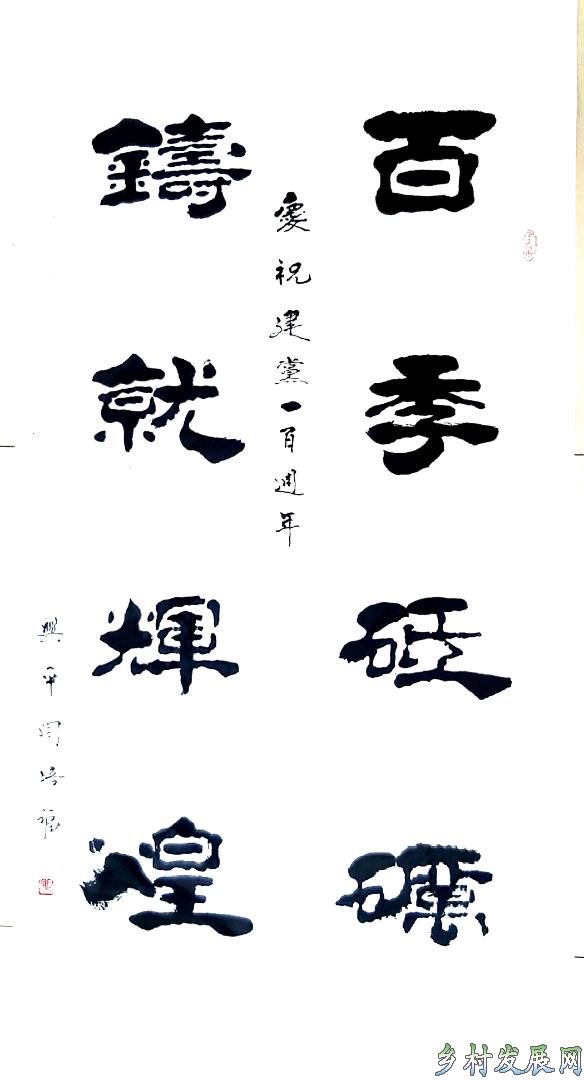 百季砥礪
慶祝建黨一百週年
鑄就輝煌
興平周培
乡村发展网